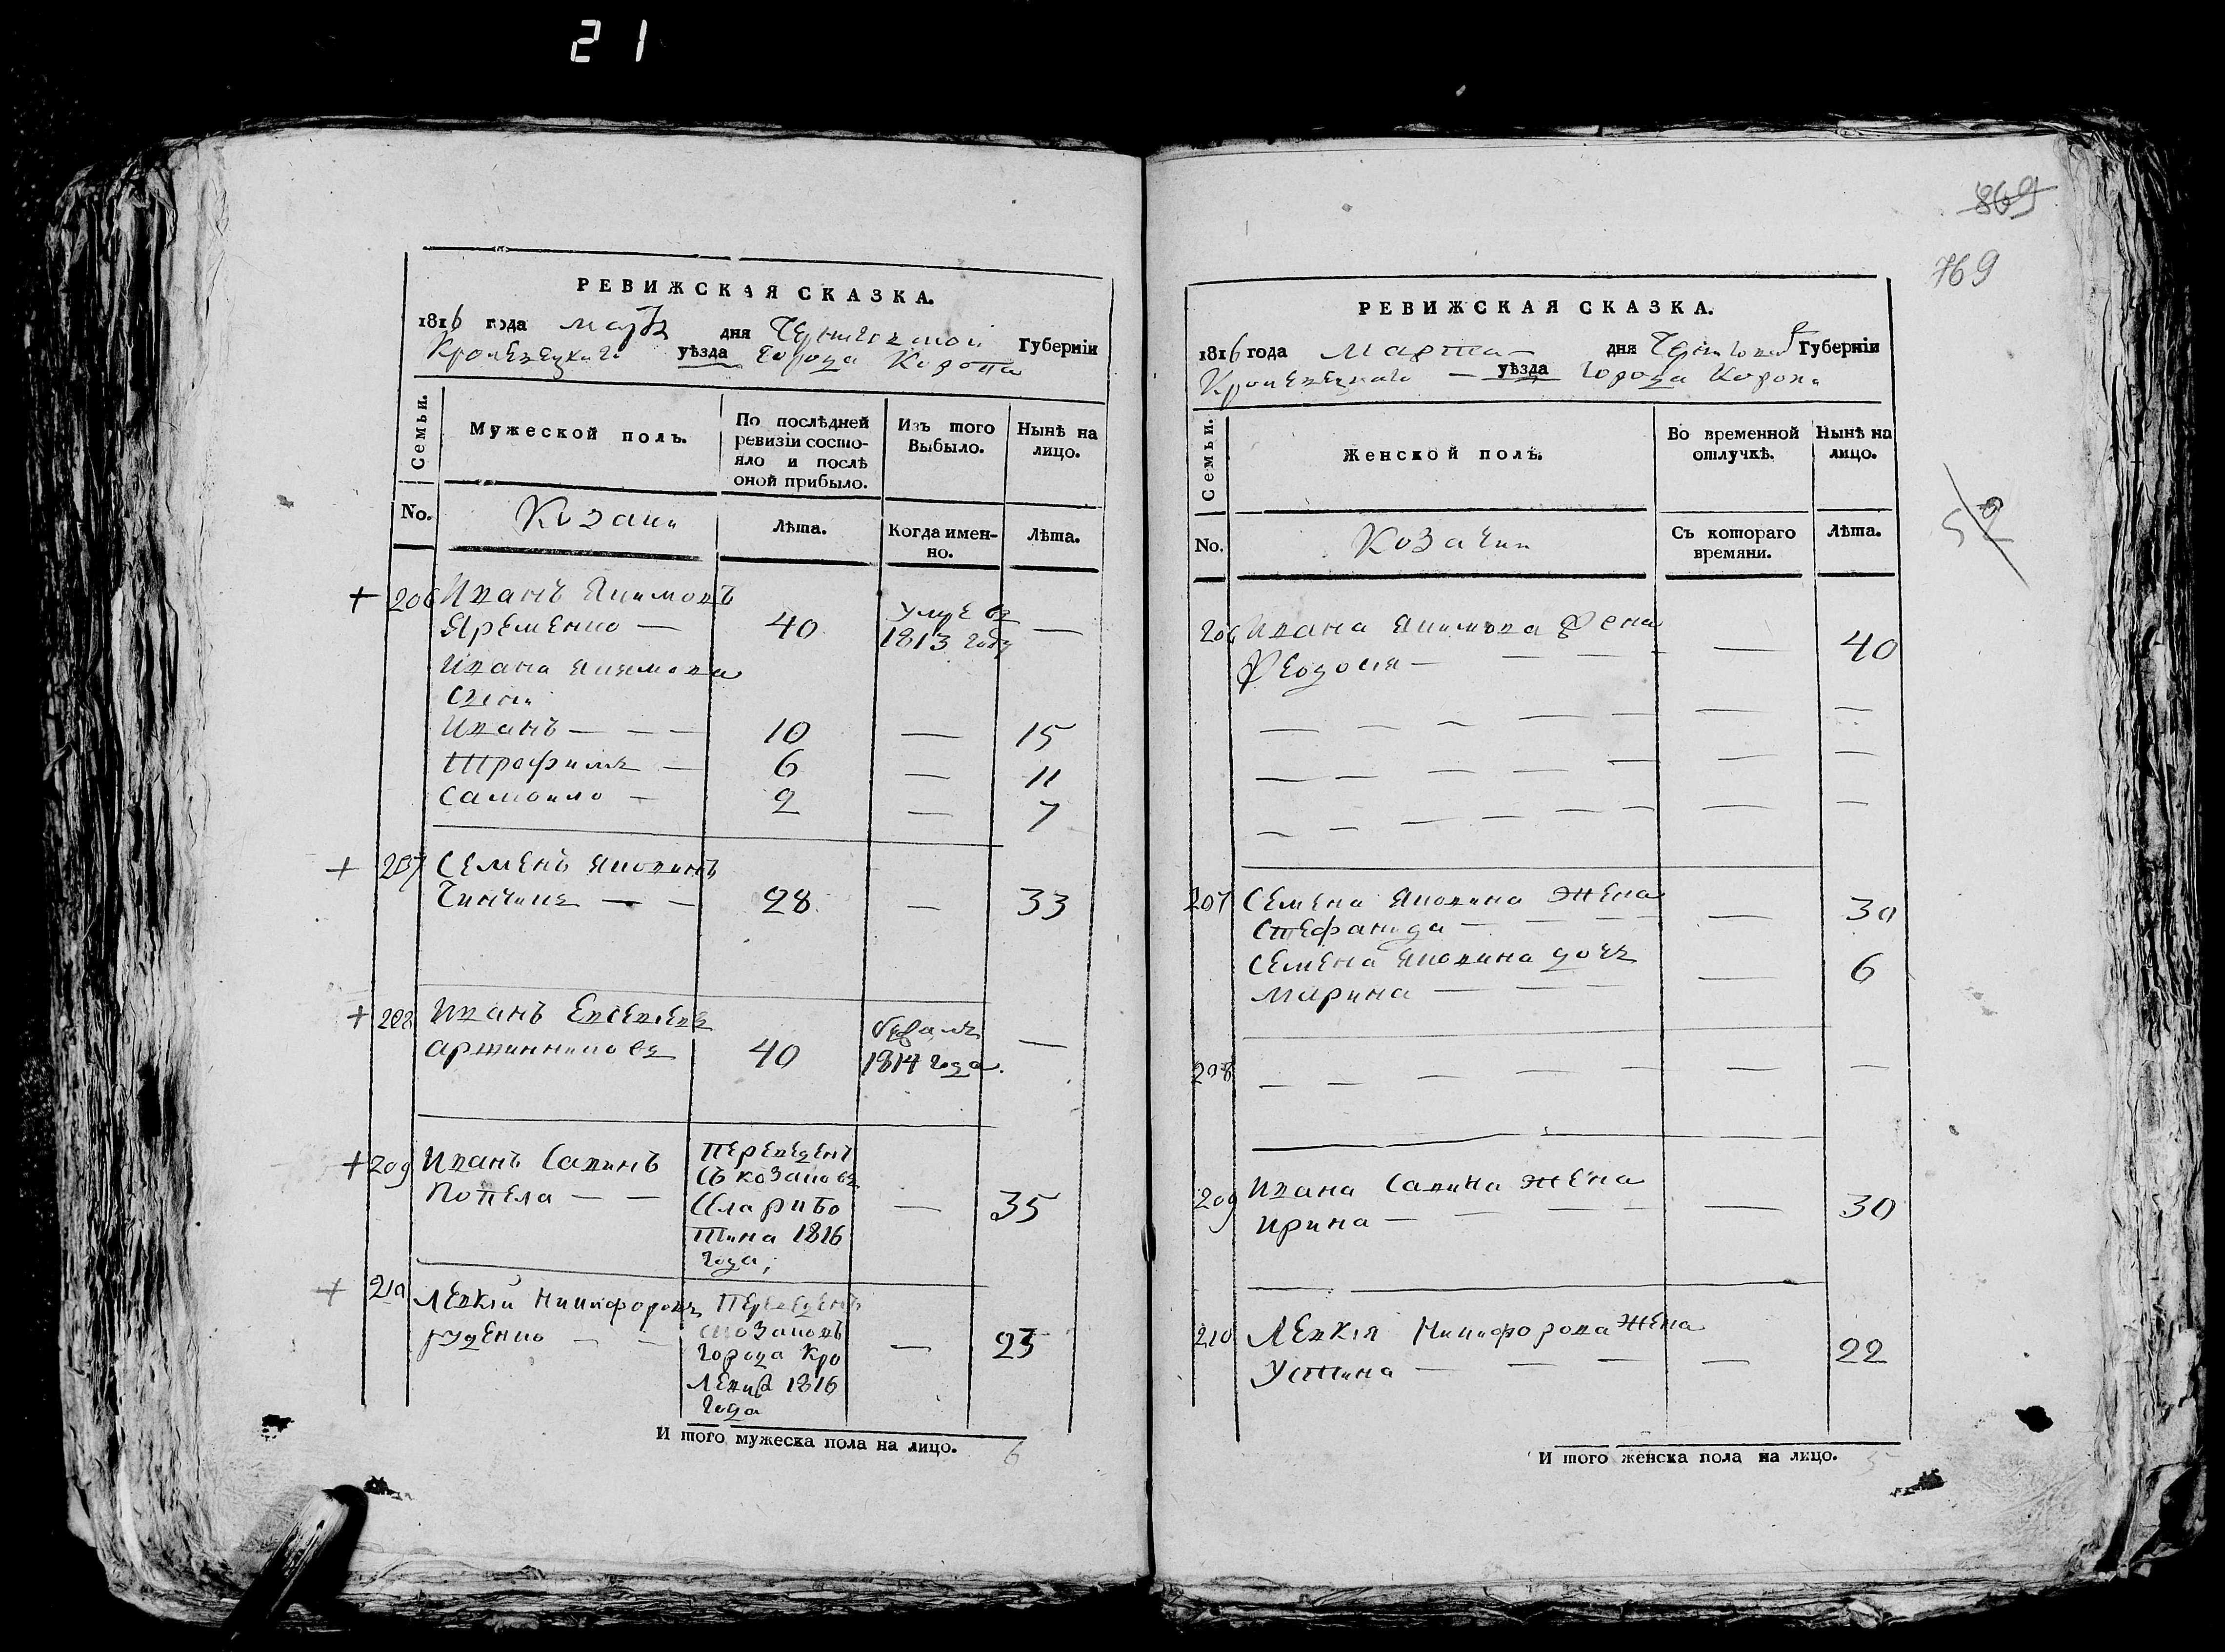 21
РЕВИЖСКАЯ СКАЗКА.
1816 года марта дня Черниговской Губерніи
Кролевецкаго уѣзда города Коропа
Семьи.
Мужеской полъ.
По послѣдней
ревизіи состо-
яло и послѣ
оной прибыло.
Изъ того
Выбыло.
Нынѣ на
лицо.
No.
Козаки
Лѣта.
Когда имен-
но.
Лѣта.
+ 206 Иванъ Якимовъ
Яременко — 40 умре въ 1813 году —
Ивана Якимова
сыни
Иванъ — — — 10 — 15
Трофимъ — 6 — 11
Самоило — 2 — 7
+ 207 Семенъ Яковинъ
— — 28 — 33
+ 208 Иванъ Евсеевъ
40 1814 года —
+ 209 Иванъ Савинъ Переведенъ
Попела — — съ козаковъ
— 35
1816
года;
+ 210 Левкій Никифоровъ Переведенъ
Руденко — — с козаковъ
города Кро — 23
левца 1816
года
И того мужеска пола на лицо. 6
869
769
РЕВИЖСКАЯ СКАЗКА.
1816 года Марта — дня Чернигов Губерніи
Кролевецкаго — уѣзда города Коропа
Семьи.
Женской полъ.
Во временной
отлучкѣ.
Нынѣ на
лицо.
52
No.
Козачки
Съ котораго
времяни.
Лѣта.
206 Ивана Якимова жена
Феодосія — — — — — 40
— — — — — — —
— — — — — — —
— — — — — — —
207 Семена Яковина жена
Стефанида — — — — — 30
Семена Яковина дочь
Марина — — — — 6
208 — — — — — — —
209 Ивана Савина жена
Ирина — — — — — 30
210 Левкія Никифорова жена
Устина — — — — 22
И того женска пола на лицо. 5